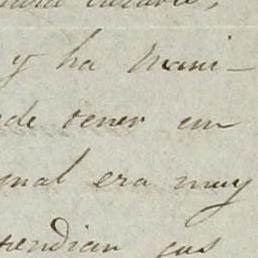 y ha mani-
de tener en
nal era muy
rendian sus